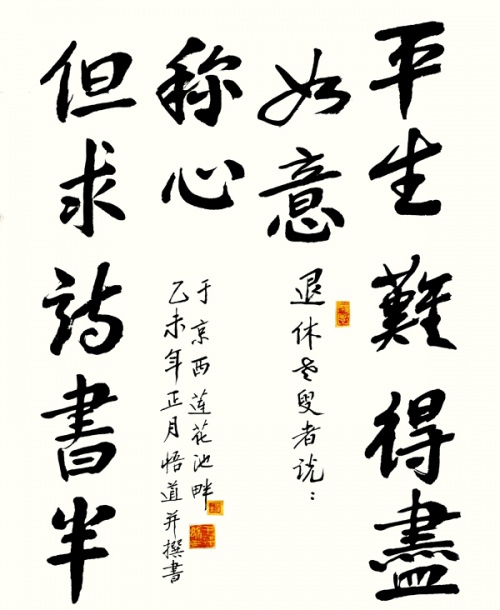 平生難得盡
如意
退休老叟者说：
但求詩書半
称心
于京西莲花池畔
乙未年正月悟道并撰書